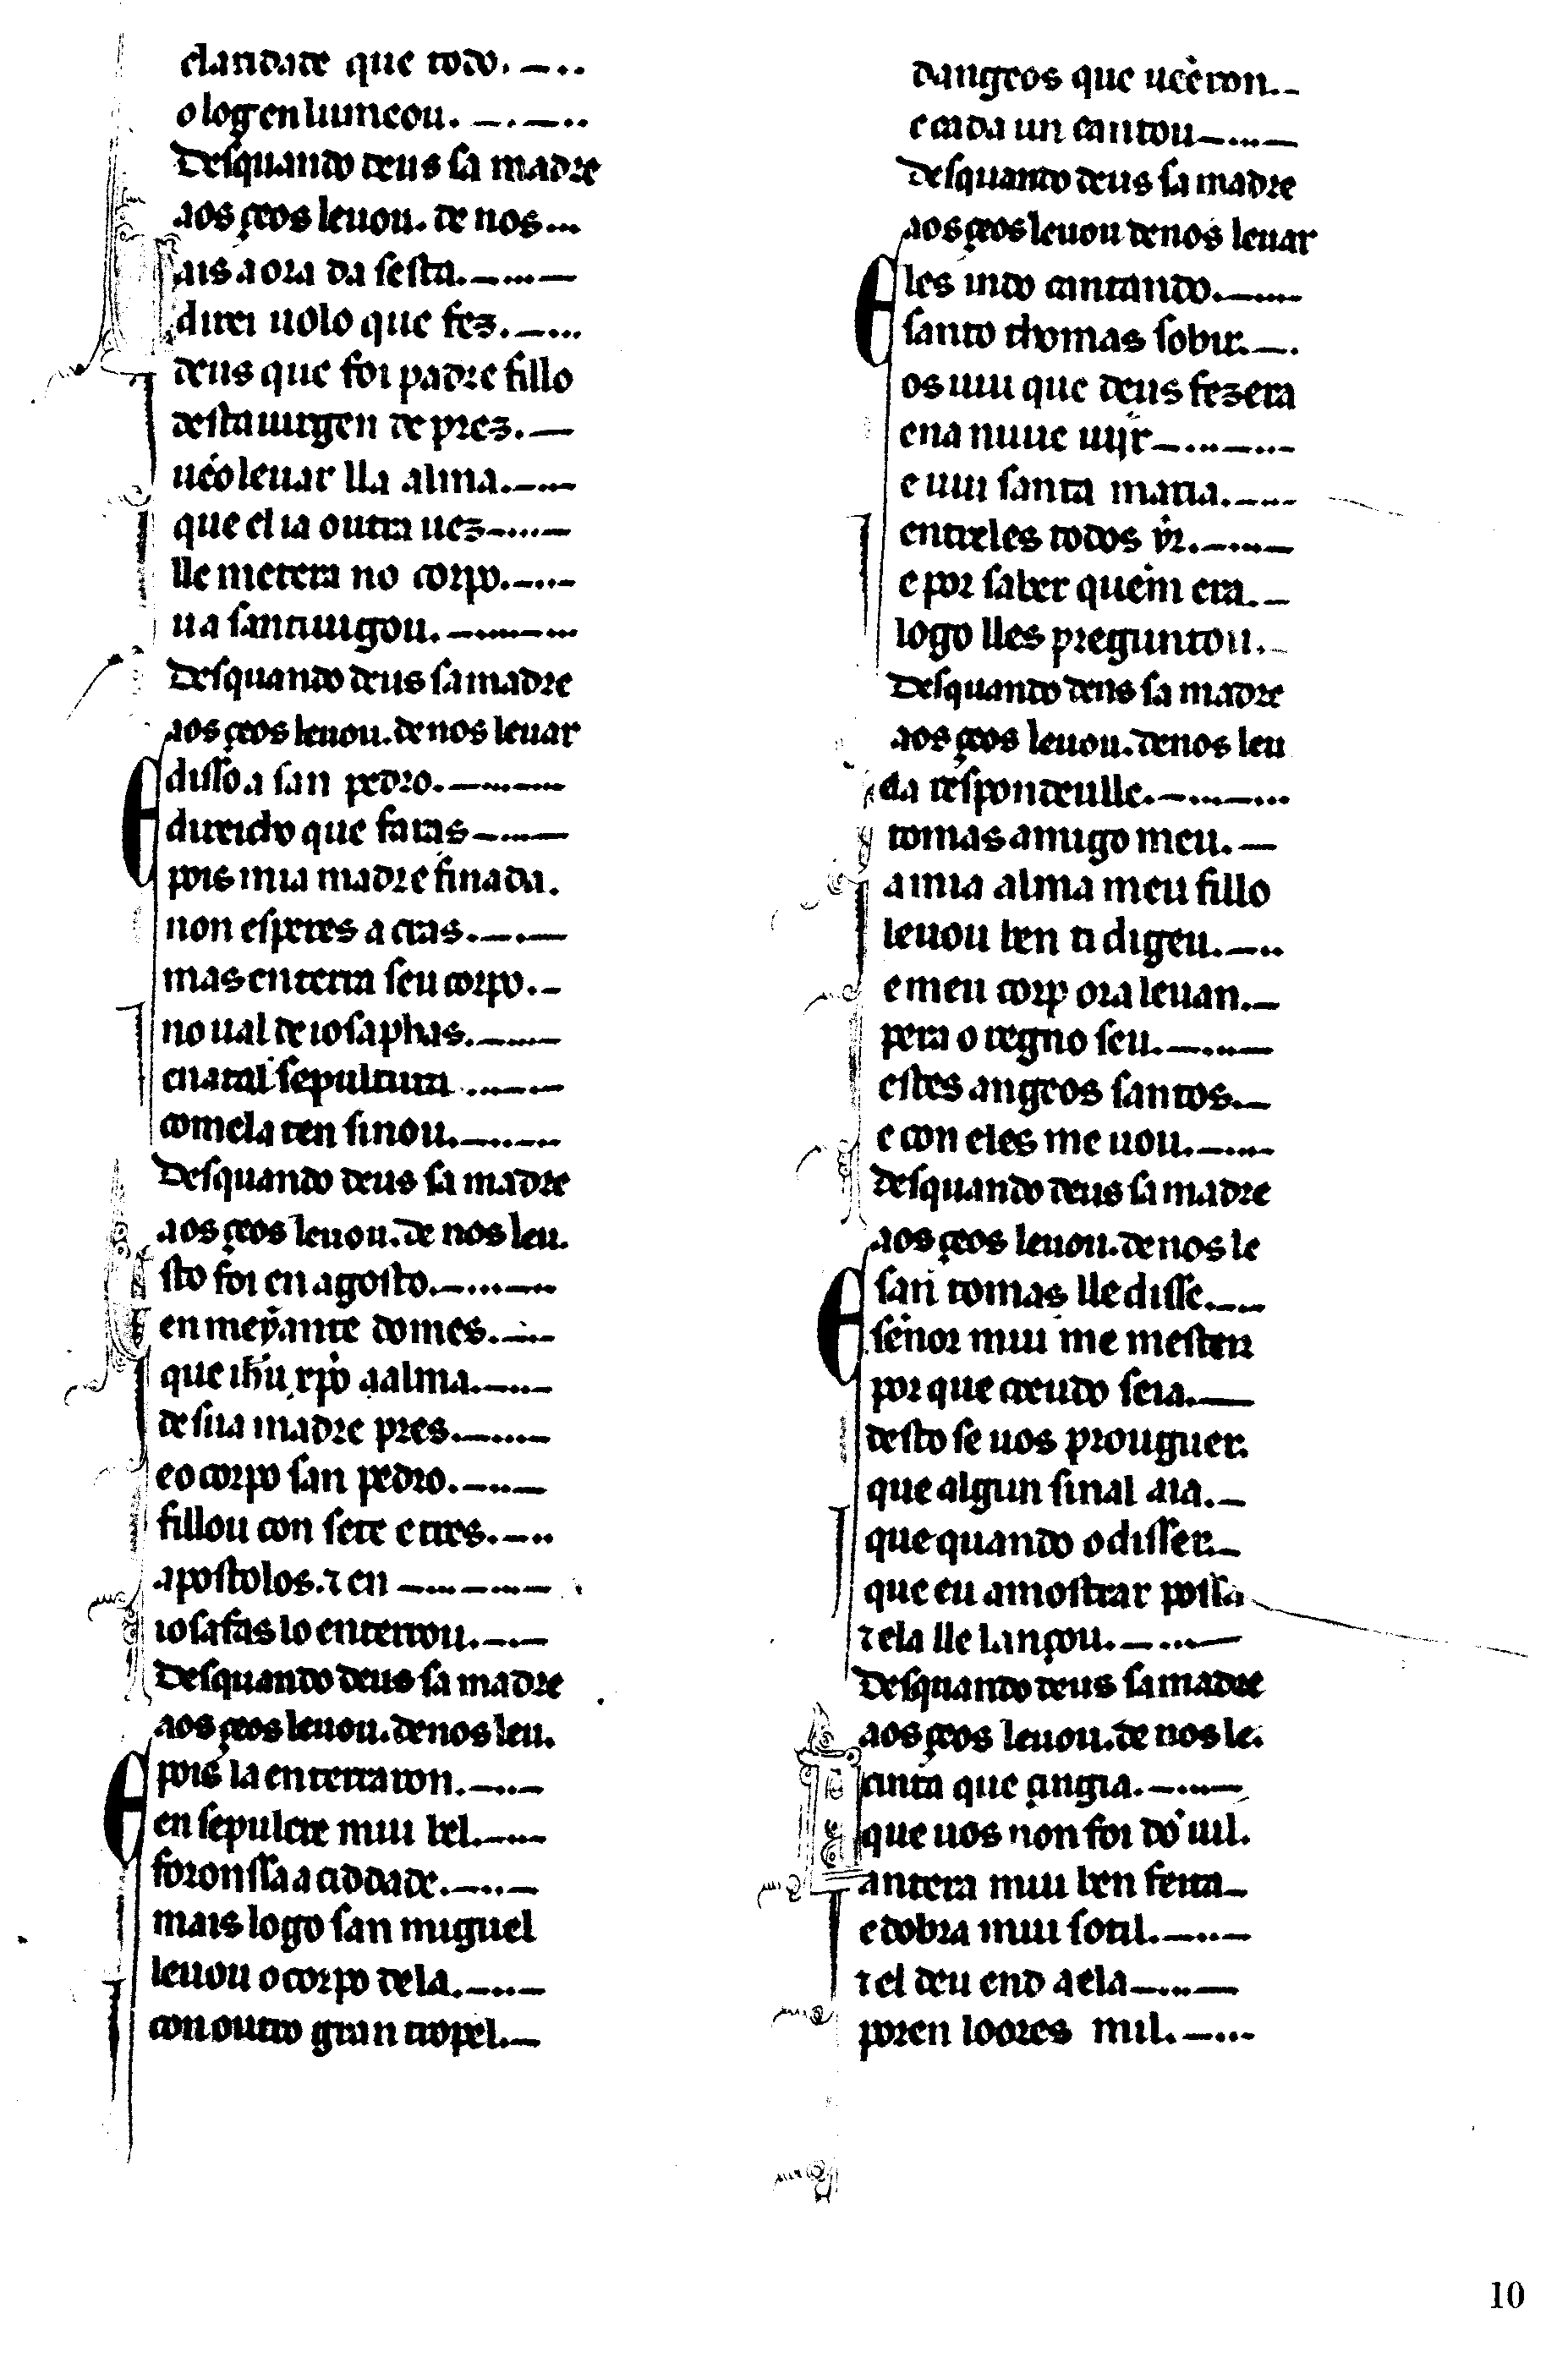 claridade que todo.
o logen lumeou.
Desquando deus sa madre
aos çeos leuou. de nos
ais a ora da sesta.
direi uolo que fez.
deus que foi padre fillo
desta uirgen de prez.
uẽo leuar lla alma.
que el ia outra uez
lle metera no corpo.
u a santiuigou.
Desquando deus sa madre
aos çeos leuou. de nos leuar
E disso a san pedro.
direicho que faras
pois mia madre finada.
non esperes a cras.
mas enterra seu corpo.
no ual de iosaphas.
en a tal sepultura
com ela ten sinou.
Desquando deus sa madre
aos çeos leuou. de nos leu.
Isto foi en agosto.
en meyante do mes.
que ihũ xp̃o a alma.
de sua madre pres.
e o corpo san pedro.
fillou con sete e tres.
apostolos. ⁊ en
iosafas lo enterrou.
Desquando deus sa madre
aos çeos leuou. de nos leu.
E pois la enterraron.
en sepulcre mui bel.
foronssa a ciddade.
mais logo san miguel
leuou o corpo dela.
con outro gran tropel.
dangeos que uẽeron.
e cada un cantou
Desquando deus sa madre
aos çeos leuou de nos leuar
Eles indo cantando.
santo thomas sobir.
os uiu que deus fezera
ena nuue uijr
e uiu santa maria.
entreles todos yr.
e por saber quem era.
logo lles preguntou.
Desquando deus sa madre
aos çeos leuou. de nos leu
ela respondeulle.
tomas amigo meu.
a mia alma meu fillo
leuou ben ti dig eu.
e meu corp ora leuan.
pera o regno seu.
estes angeos santos.
e con eles me uou.
Desquando deus sa madre
aos çeos leuou. de nos le
E san tomas lle disse.
sẽnor mui me mester
por que creudo seia.
desto se uos prouguer.
que algun sinal aia.
que quando o disser.
que eu amostrar possa
⁊ ela lle lançou.
Desquando deus sa madre
aos çeos leuou. de nos le.
cinta que çingia.
que uos non foi dõ uil.
ant era mui ben feita
e dobra mui sotil.
⁊ el deu end a ela
poren loores mil.
10